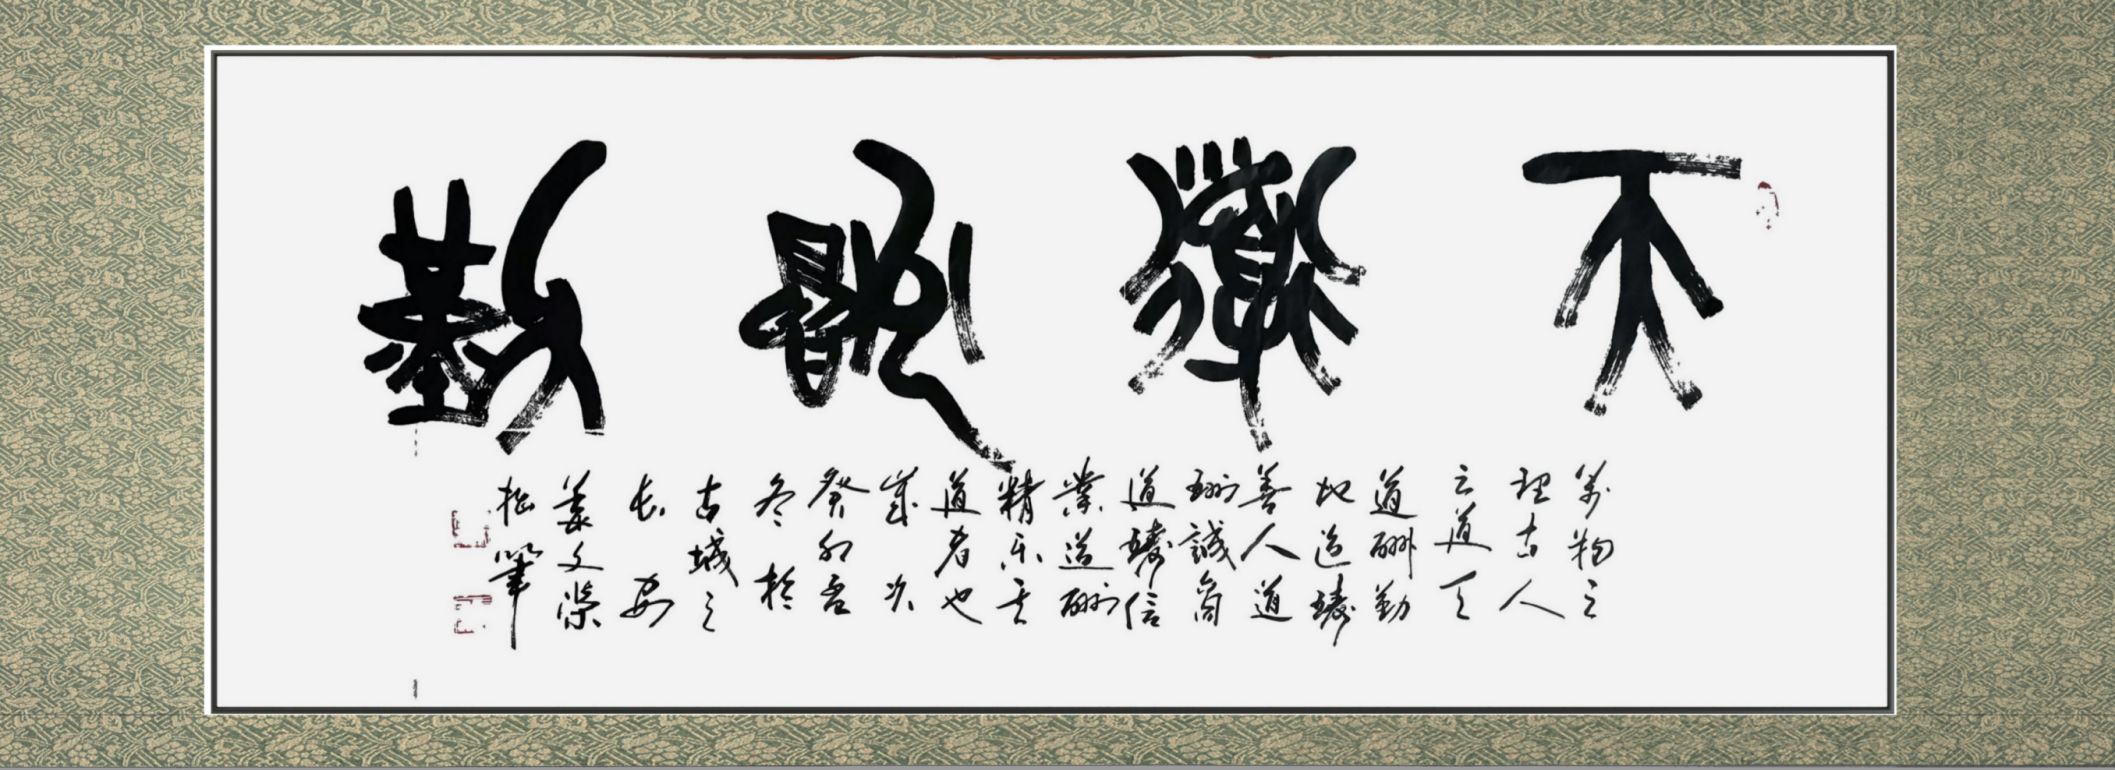 天道酬勤
萬物之
理古人
云道天
道酬勤
地道
善人道
酬誠商
道信
業道酬
精乐天
道者也
歲次
癸卯
冬於
古城之
长安
姜文榮
拙筆